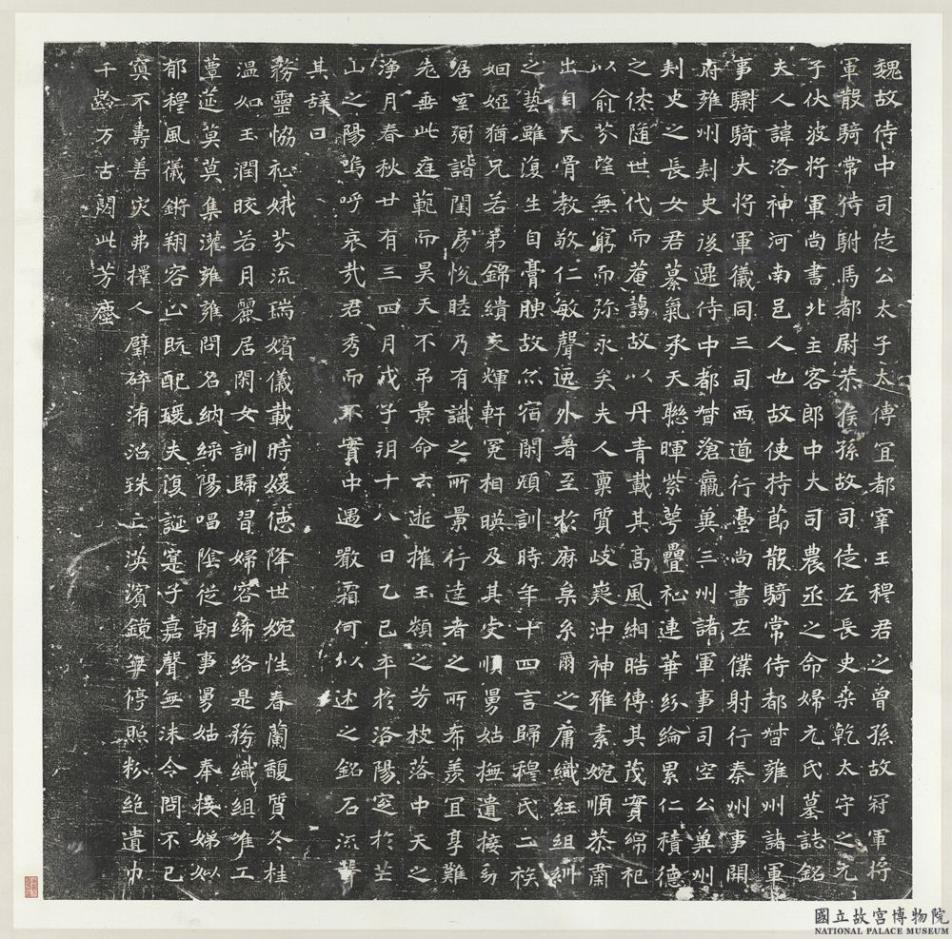 魏故侍中司徒公太子太傅宜都宰王穆君之曾孫故冠軍將
軍散騎常侍駙馬都尉恭侯孫故司徒左長史桑乾太守之元
子伏波將軍尚書北主客郎中大司農丞之命婦元氏墓誌銘
夫人諱洛神河南邑人也故使持節散騎常侍都督雍州諸軍
事驃騎大將軍儀同三司西道行臺尚書左僕射行秦州事開
府雍州刺史後遷侍中都督滄瀛冀三州諸軍事司空公冀州
刺史之長女君纂氣承天聯暉紫萼疊祉連華紛綸累仁積德
之俠隨世代而菴藹故以丹青載其高風緗皓傳其茂實綿祀
以僉芬望無窮而弥永矣夫人稟質岐嶷沖神雅素婉順恭肅
出自天骨教敬仁敏聲逸外著至於麻枲糸爾之庸織紝組紃
之藝雖復生自膏腴故亦宿閑頌訓時年十四言歸穆氏二族
姻婭猶兄若弟錦繢交輝軒冕相暎及其史順舅姑撫遺接幼
居室弼諧閨房悅睦乃有識之所景行達者之所希羨宜享難
老垂此庭範而昊天不弔景命云逝摧玉頯之芳枝落中天之
淨月春秋廿有三四月戊子朔十八日乙巳卒於洛陽窆於芒
山之陽嗚呼哀哉君秀而不實中遇嚴霜何以述之銘石流聲
其辞曰
務靈協祉娥芬流瑞嬪儀載時媛德降世婉性春蘭馥質冬桂
温如玉潤皎若月麗居閑女訓歸習婦容絺綌是務織組唯工
蕈莚莫莫集灌雍雍問名納綵陽唱陰從朝事舅姑奉接娣姒
郁穆風儀鏘翔容止既配硋夫復誕寔子嘉聲無沬令問不已
寘不壽善灾弗擇人璧碎洧沿珠亡漢濱鏡無停照粉絕遺巾
千齡万古閟此芳塵
國立故宮博物院
NATIONAL PALACE MUSEUM